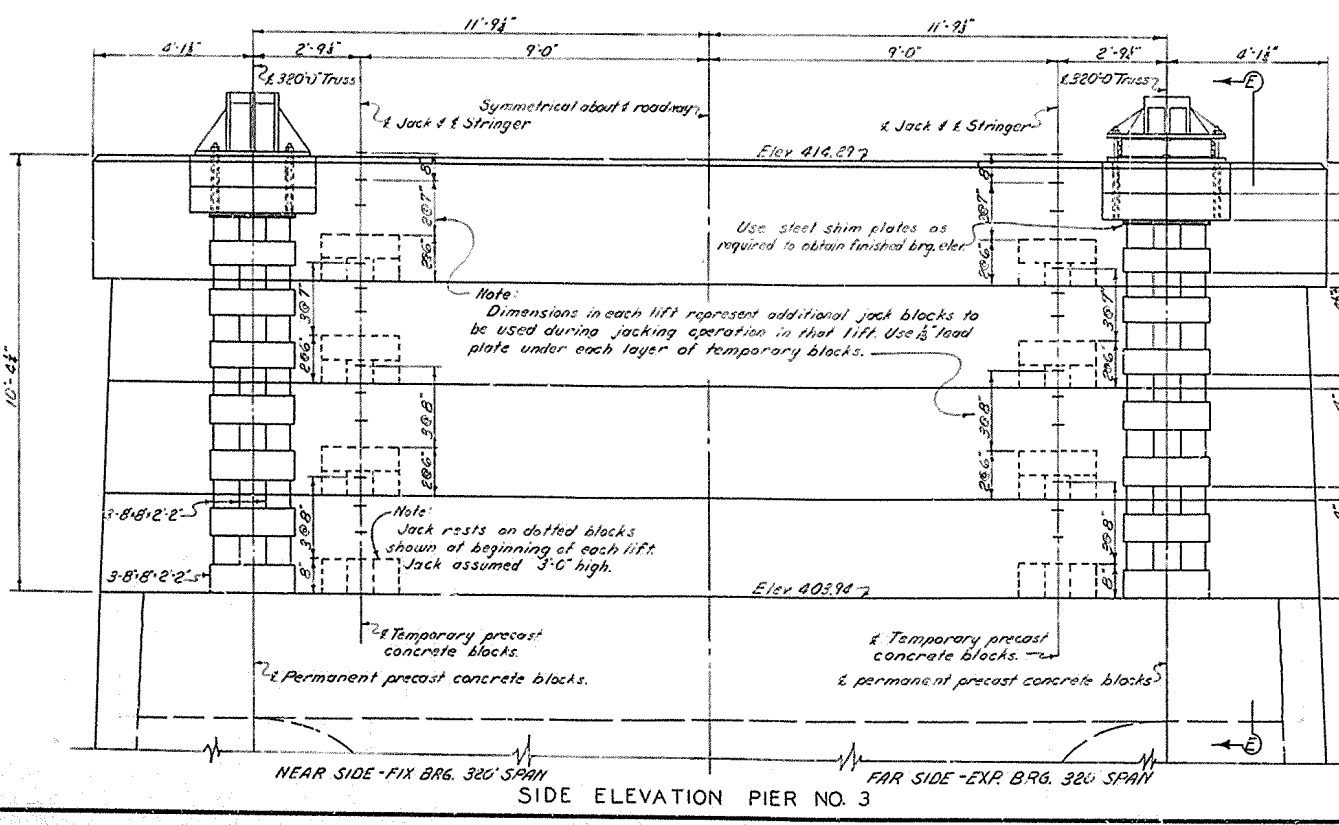 11'-9¼" 11'-9¼"
4'-1½" 2'-9¼" 9'-0" 9'-0" 2'-9¼" 4'-1½"
℄ 320'-0" Truss
℄ 320'-0 Truss
E
Symmetrical about ℄ roadway
℄ Jack & ℄ Stringer
℄ Jack & ℄ Stringer
Elev 414.29
8"
2@7"
2@6"
8"
3@7"
2@6"
Use steel shim plates as
required to obtain finished brg. elev.
Note:
Dimensions in each lift represent additional jack blocks to
be used during jacking operation in that lift. Use ½" load
plate under each layer of temporary blocks.
3@7"
2@6"
3@7"
2@6"
10'-4¼"
3@8"
2@6"
3@8"
2@6"
3-8"x8"x2'-2"
Note:
Jack rests on dotted blocks
shown at beginning of each lift.
Jack assumed 3'-0" high.
3@8"
8"
2@8"
8"
3-8"x8"x2'-2"
Elev 403.94
℄ Temporary precast
concrete blocks.
℄ Temporary precast
concrete blocks.
℄ Permanent precast concrete blocks.
℄ permanent precast concrete blocks
E
NEAR SIDE - FIX BRG. 320' SPAN
FAR SIDE - EXP. BRG. 320' SPAN
SIDE ELEVATION PIER NO. 3